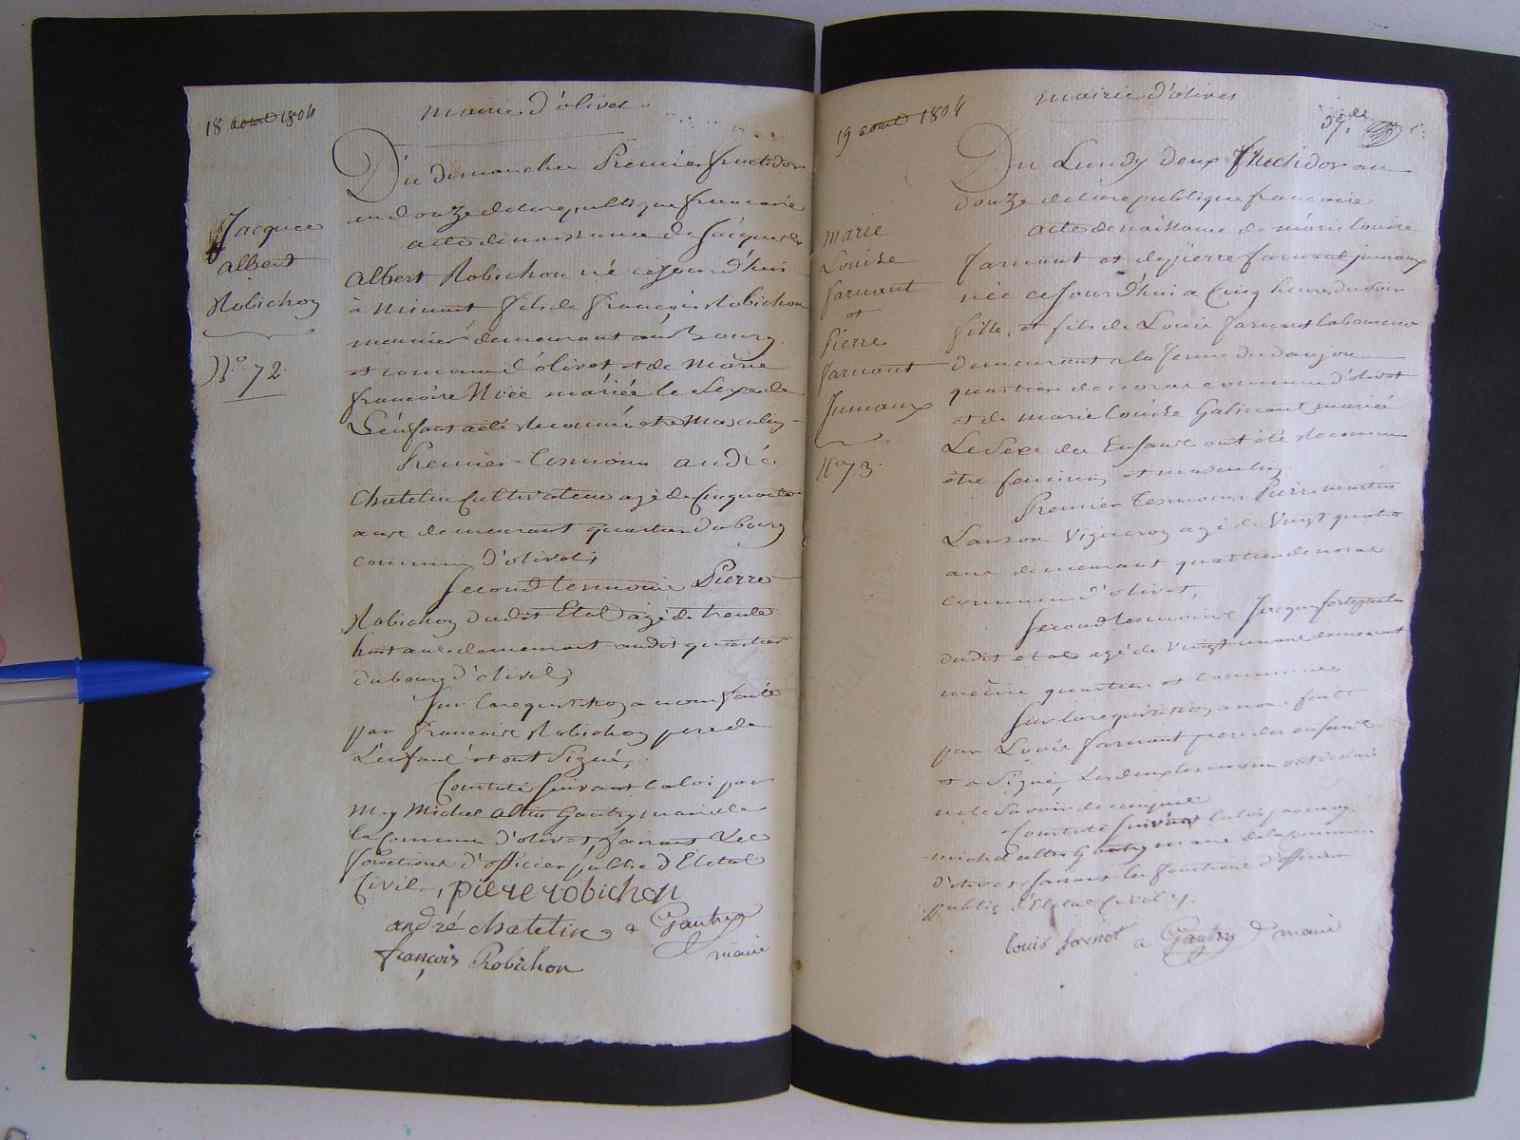 18 aout 1804
mairie d'olivet
Du dimanche Premier fructidor
an douze de la republique francaise
acte de naissance de Jacques
Albert Robichon né cejourd'hui
à minuit fils de françois Robichon
meunier demeurant au Bourg
et commune d'olivet et de marie
françoise Niée mariée le Sexe de
L'enfant a été reconnu etre Masculin
Premier temoin andré
Chatelin Cultivateur agé de Cinquante
ans demeurant quartier du bourg
commune d'olivet
Second temoin Pierre
Robichon dudit Etat agé de trente
huit ans demeurant audit quartier
du bourg d'olivet
Sur la requisition a nous faite
par françois Robichon pere de
L'enfant et ont Signé,
Constaté Suivant la loi par
moy Michel Gautry maire de
la Commune d'olivet, faisant Les
fonctions d'officier public d'Etat
Civil, piere robichon
andré chatelin Gautry
maire
françois Robichon
Jacques
albert
Robichon
No. 72
19 aout 1804
mairie d'olivet
Du Lundy deux fructidor an
douze de la republique francaise
acte de naissance de marie louise
farnault et de pierre farnault jumeaux
née ce Jourd'hui a Cinq heures du Soir
fille et fils de Louis farnault
demeurant a la ferme du donjon
quartier de commune d'olivet
et de marie louise mariée
Le Sexe des Enfants ont été reconnu
être feminin et masculin
Premier temoin Pierre martin
Lanson Vigneron agé de Vingt quatre
ans demeurant quartier de
commune d'olivet,
Second temoin Jacques
dudit etat agé de Vingt un ans demeurant
même quartier et commune
Sur la requisition a nous faite
par Louis farnault pere des enfants
et a Signé, Les deux temoins ont déclaré
ne le Savoir de ce enquis
Constaté Suivant la loi par moy
michel Gautry maire de la commune
d'olivet faisant les fonctions d'officier
public d'Etat Civil
louis farnot Gautry maire
marie
Louise
farnault
et
Pierre
farnault
Jumeaux
No 73